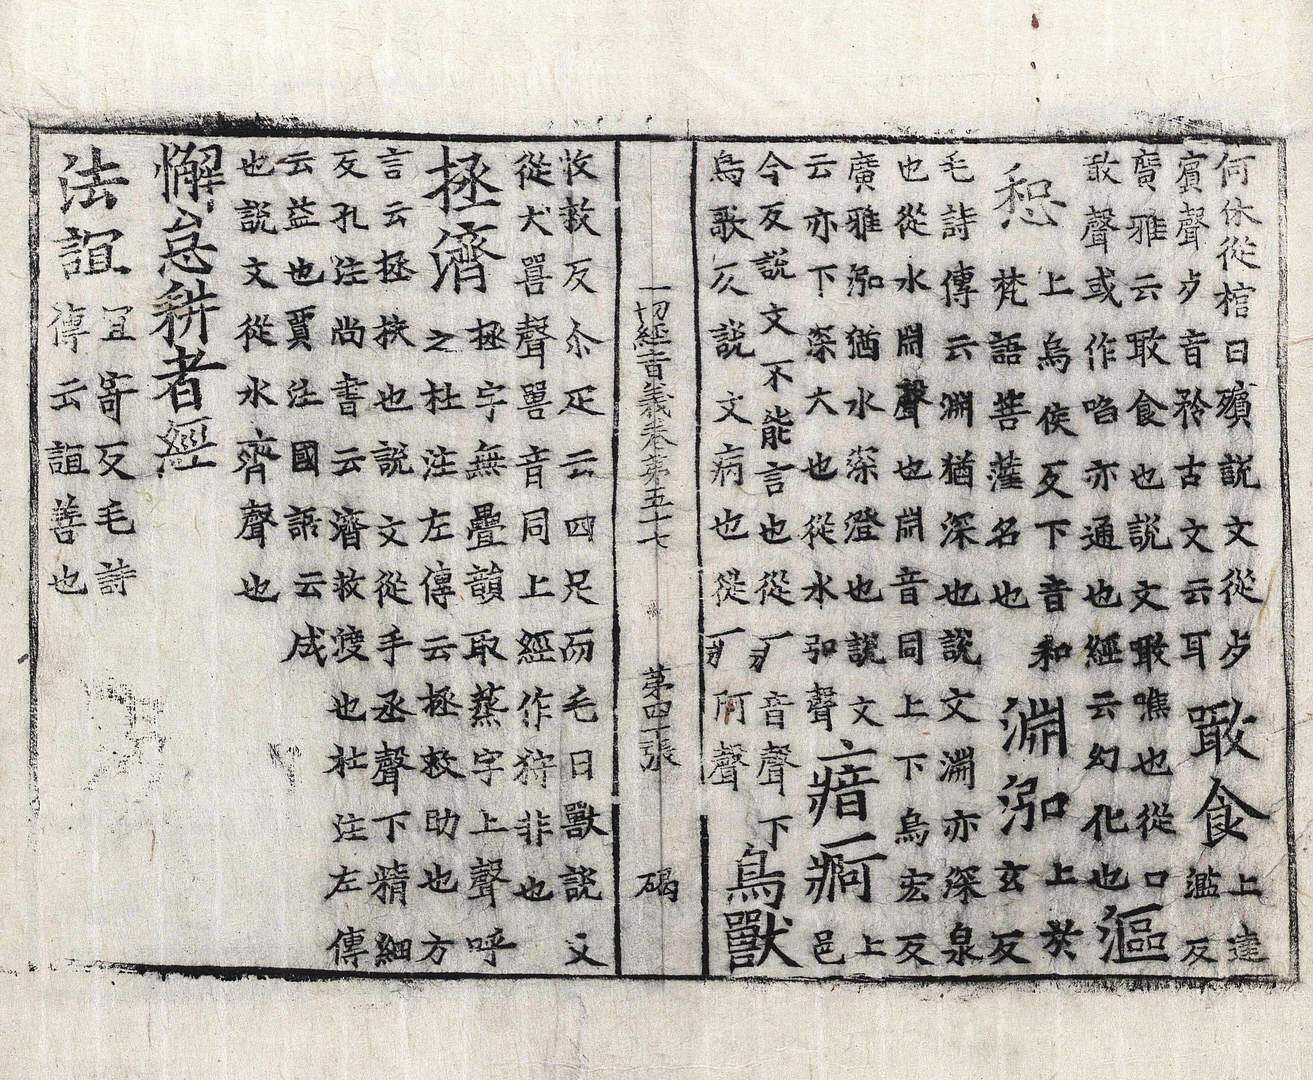 何休從棺曰殯說文從歺
賓聲歺音矜古文云耳
敢食上達
濫反
廣雅云敢食也說文噉噍也從口
敢聲或作啗亦通也經云幻化也
漚
惒
上烏侯反下音和
梵語菩薩名也
淵泓
上於
玄反
毛詩傳云淵猶深也說文淵亦深泉
也從水𣶒聲也𣶒音同上下烏宏反
廣雅泓猶水深澄也說文
云亦下深大也從水弘聲
瘖瘂
上
邑
今反說文不能言也從疒音聲下
烏歌反說文病也從疒阿聲
鳥獸
一切經音義卷第五十七
第四十張
碣
收救反尒疋云四足而毛曰獸說文
從犬嘼聲嘼音同上經作狩非也
拯濟
拯字無疊韻取蒸字上聲呼
之杜注左傳云拯救助也方
言云拯拔也說文從手丞聲下精細
反孔注尚書云濟救渡也杜注左傳
云益也賈注國語云成
也說文從水齊聲也
懈怠耕者經
法誼
宜寄反毛詩
傳云誼善也